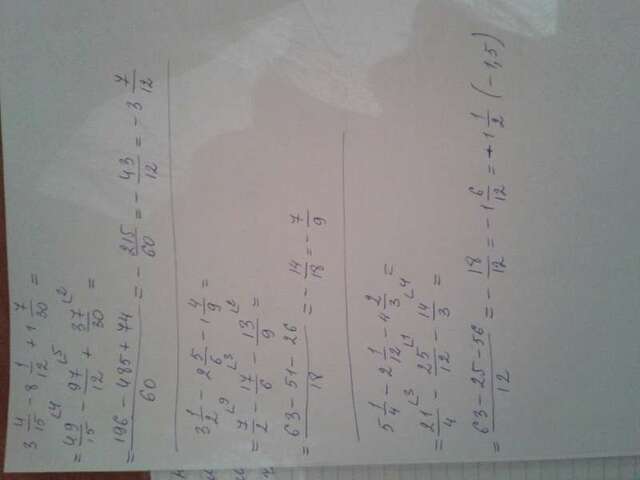 3 4/15 - 8 1/12 + 1 7/30 =
= 49/15 ∟4 - 97/12 ∟5 + 37/30 ∟2 =
= (196 - 485 + 74)/60 = - 215/60 = - 43/12 = - 3 7/12
3 1/2 - 2 5/6 - 1 4/9 =
= 7/2 ∟9 - 17/6 ∟3 - 13/9 ∟2 =
= (63 - 51 - 26)/18 = - 14/18 = - 7/9
5 1/4 - 2 1/12 - 4 2/3 =
= 21/4 ∟3 - 25/12 ∟1 - 14/3 ∟4 =
= (63 - 25 - 56)/12 = - 18/12 = - 1 6/12 = - 1 1/2 (-1,5)